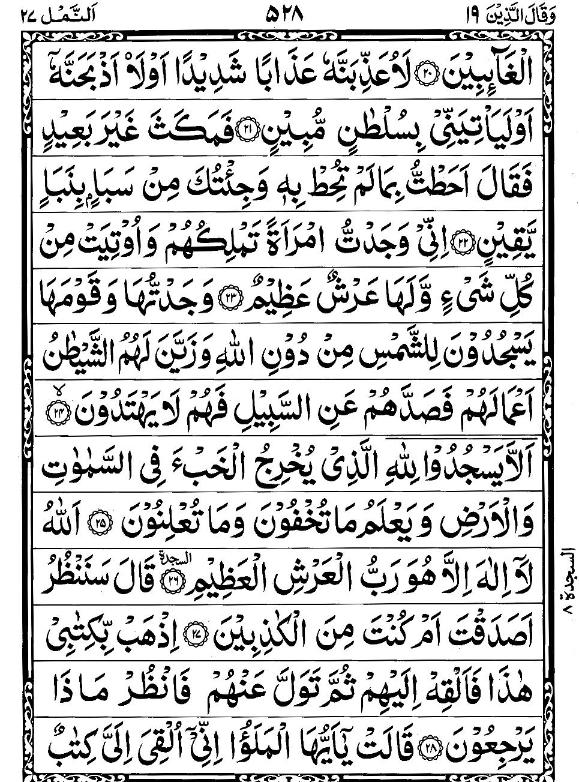 وَقَالَ الَّذِيْنَ ١٩ ٥٢٨ اَلنَّمْل ٢٧
الْغَآئِبِيْنَ ﴿٢٠﴾ لَاُعَذِّبَنَّهٗ عَذَابًا شَدِيْدًا اَوْ لَاۡ اَذْبَحَنَّهٗۤ
اَوْ لَيَاْتِيَنِّيْ بِسُلْطٰنٍ مُّبِيْنٍ ﴿٢١﴾ فَمَكَثَ غَيْرَ بَعِيْدٍ
فَقَالَ اَحَطْتُّ بِمَا لَمْ تُحِطْ بِهٖ وَجِئْتُكَ مِنْ سَبَاٍۭ بِنَبَاٍ
يَّقِيْنٍ ﴿٢٢﴾ اِنِّيْ وَجَدْتُّ امْرَاَةً تَمْلِكُهُمْ وَاُوْتِيَتْ مِنْ
كُلِّ شَيْءٍ وَّلَهَا عَرْشٌ عَظِيْمٌ ﴿٢٣﴾ وَجَدْتُّهَا وَقَوْمَهَا
يَسْجُدُوْنَ لِلشَّمْسِ مِنْ دُوْنِ اللّٰهِ وَزَيَّنَ لَهُمُ الشَّيْطٰنُ
اَعْمَالَهُمْ فَصَدَّهُمْ عَنِ السَّبِيْلِ فَهُمْ لَا يَهْتَدُوْنَ ﴿٢٤﴾ لا
اَلَّا يَسْجُدُوْا لِلّٰهِ الَّذِيْ يُخْرِجُ الْخَبْءَ فِي السَّمٰوٰتِ
وَالْاَرْضِ وَيَعْلَمُ مَا تُخْفُوْنَ وَمَا تُعْلِنُوْنَ ﴿٢٥﴾ اَللّٰهُ
لَاۤ اِلٰهَ اِلَّا هُوَ رَبُّ الْعَرْشِ الْعَظِيْمِ ﴿٢٦﴾ السجدة قَالَ سَنَنْظُرُ
اَصَدَقْتَ اَمْ كُنْتَ مِنَ الْكٰذِبِيْنَ ﴿٢٧﴾ اِذْهَبْ بِّكِتٰبِيْ
هٰذَا فَاَلْقِهْ اِلَيْهِمْ ثُمَّ تَوَلَّ عَنْهُمْ فَانْظُرْ مَاذَا
يَرْجِعُوْنَ ﴿٢٨﴾ قَالَتْ يٰۤاَيُّهَا الْمَلَؤُا اِنِّيْۤ اُلْقِيَ اِلَيَّ كِتٰبٌ
السجدة ٨